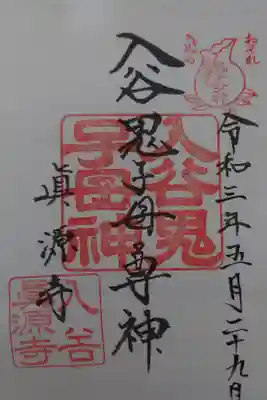 おそれ
入谷の
令和三年五月二十九日
入谷鬼子母尊神
眞源寺
入谷鬼
子母神
入谷
眞源寺